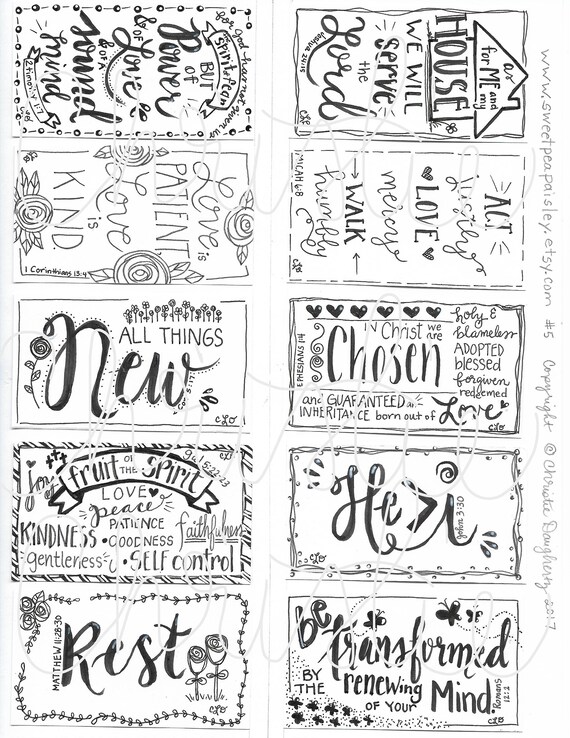 for God has not given us
a
Spirit of fear
BUT
of
Power
& of
Love
& OF A
Sound
mind
2 Timothy 1:7
CLO
as
for ME and
my
HOUSE
WE WILL
Serve
the
Lord
Joshua 24:15
CLO
Love is
PATIENT
Love
is
KIND
1 Corinthians 13:4
CLO
ACT
justly
LOVE
mercy
WALK
humbly
MICAH 6:8
CLO
ALL THINGS
New
CLO
EPHESIANS 1:4
IN Christ we
are
Chosen
holy &
blameless
ADOPTED
blessed
forgiven
redeemed
and GUARANTEED an
INHERITANCE born out of
Love
CLO
Gal 5:22-23
CLO
fruit OF THE Spirit
Joy
LOVE
peace
PATIENCE
KINDNESS • GOODNESS faithfulness
gentleness • SELF control
He > i
John 3:30
CLO
MATTHEW 11:28-30
Rest
CLO
Be
Transformed
BY
THE
renewing
OF YOUR
Mind.
Romans
12:2
CLO
www.sweetpeapaisley.etsy.com #5 Copyright © Christie Daugherty 2017
Christie